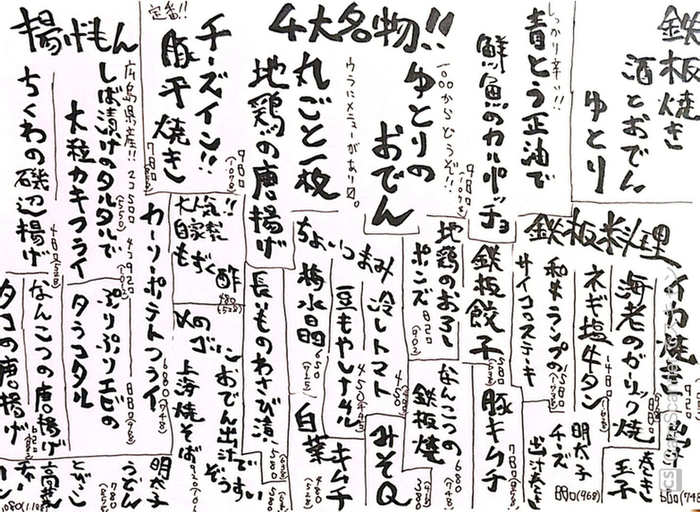 鉄板焼き
酒とおでん
ゆとり
しっかり辛い!!
青とう正油で
鮮魚のカルパッチョ
980
(1078)
4大名物!!
100からどうぞ!!
ゆとりの
おでん
ウラにメニューがあり〼。
丸ごと一枚
地鶏の唐揚げ
980
(1078)
定番!!
チーズイン!!
豚平焼き
780
(858)
揚げもん
広島県産!!
しば漬けのタルタルで
大粒カキフライ
2コ500
(550)
4コ920
ちくわの磯辺揚げ
480
(528)
鉄板料理
海老のガーリック焼
ネギ塩牛タン
1480
和牛ランプの
サイコロステーキ
1580
(1738)
鉄板餃子
580
豚キムチ
780
(858)
明太子
チーズ
出汁巻き
880(968)
巻き
玉子
地鶏のおろし
ポンズ
820
(902)
なんこつの
鉄板焼
680
(748)
ちょいつまみ
冷しトマト
400
豆もやしナムル
450
梅水晶
650
(715)
みそQ
380
白菜
キムチ
480
(528)
長いものわさび漬
580
(638)
大人気!!
自家製
もずく酢
480
(528)
〆のゴハン
おでん出汁で
ぞうすい
上海焼そば
920
カーリーポテトフライ
680
(748)
ぷりぷりエビの
タラコタル
880
(968)
なんこつの唐揚げ
タコの唐揚げ
明太子
うどん
780
(858)
とびこ
高菜
1080(1188)